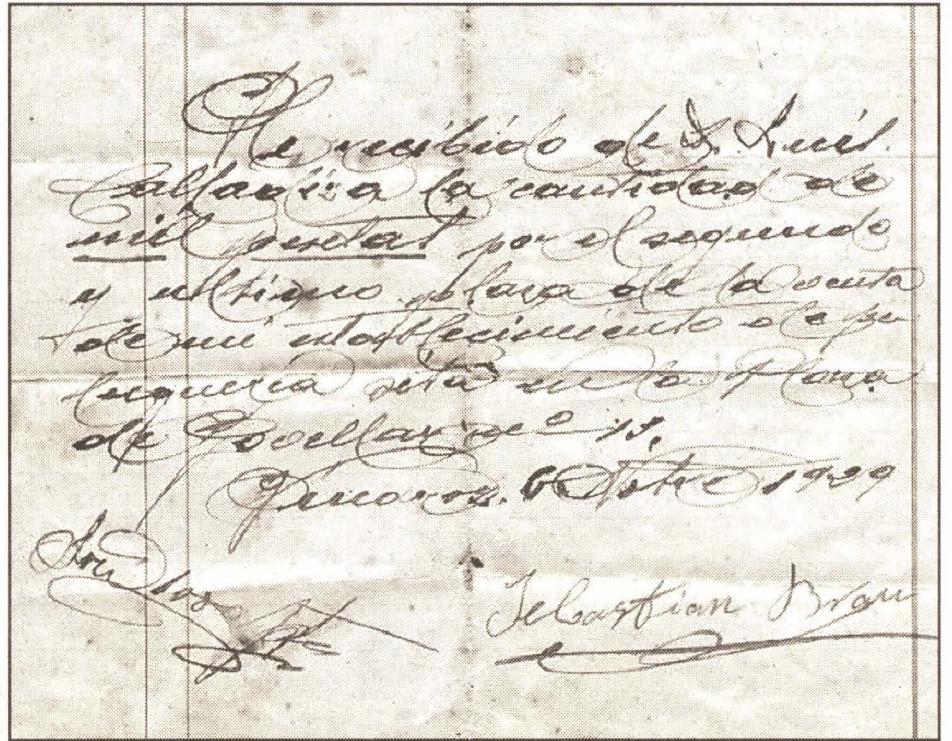 He recibido de D. Luis
la cantidad de
mil pesetas por el segundo
y ultimo plazo de la venta
de mi establecimiento de pe
luqueria sita en la Plaza
de nº 11.
6 Obre 1929
Sebastian Brau